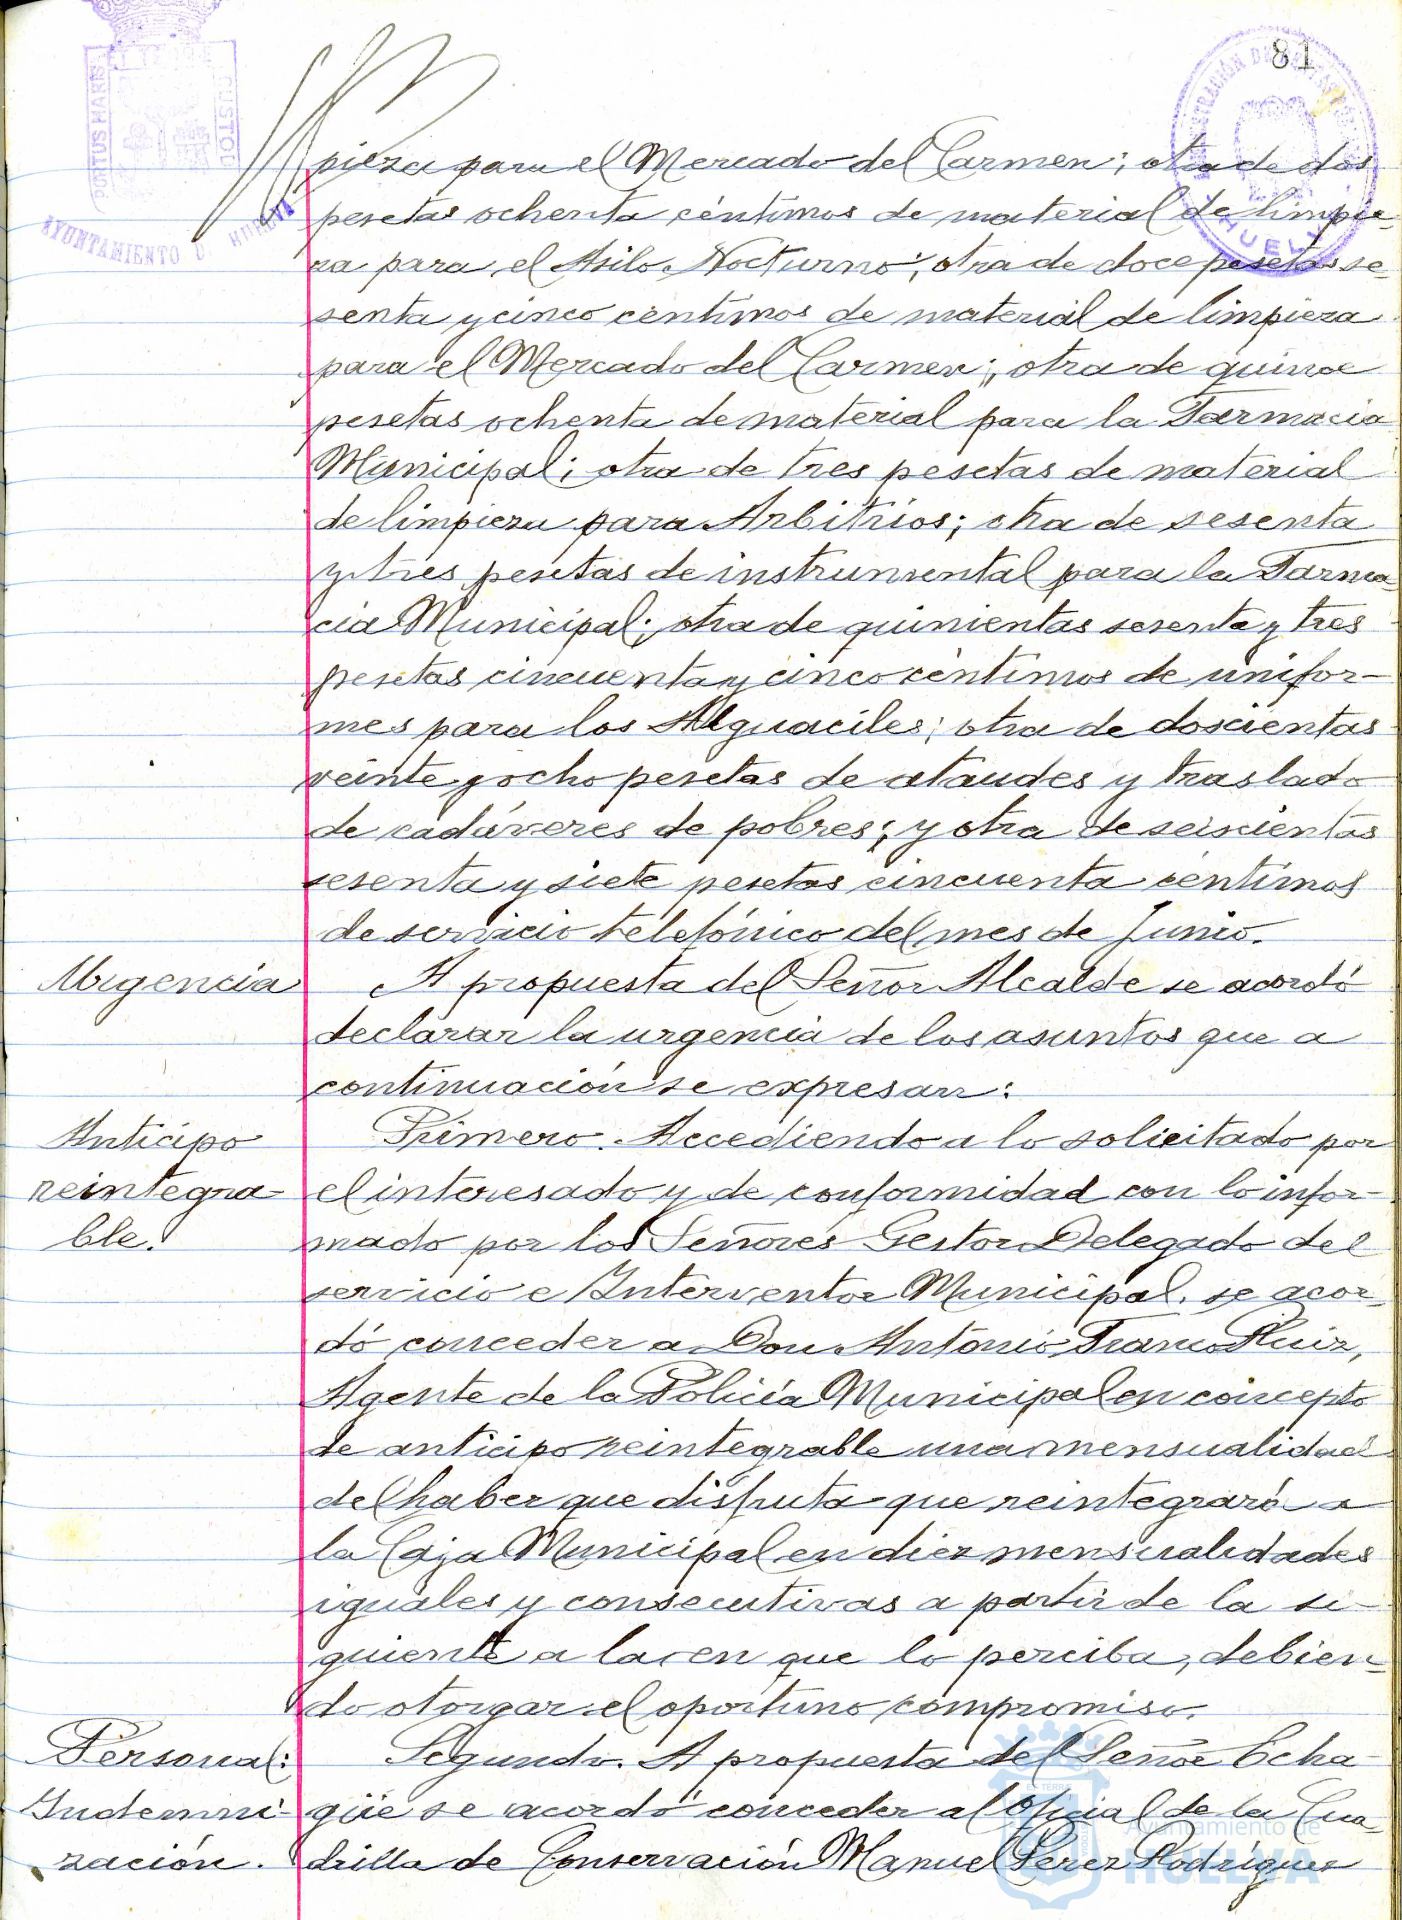 81
PORTUS MARIS ET TERRÆ CUSTOD
AYUNTAMIENTO D HUELVA
HUELVA
pieza para el Mercado del Carmen; otra de dos
pesetas ochenta céntimos de material de limpie-
za para el Asilo Nocturno; otra de doce pesetas se-
senta y cinco centimos de material de limpieza
para el Mercado del Carmen; otra de quince
pesetas ochenta de material para la Farmacia
Municipal; otra de tres pesetas de material
de limpieza para Arbitrios; otra de sesenta
y tres pesetas de instrumental para la Farma-
cia Municipal; otra de quinientas sesenta y tres
pesetas cincuenta y cinco céntimos de unifor-
mes para los Alguaciles; otra de doscientas
veinte y ocho pesetas de ataudes y traslado
de cadáveres de pobres; y otra de seiscientas
sesenta y siete pesetas cincuenta céntimos
de servicio telefónico del mes de Junio.
Urgencia
A propuesta del Señor Alcalde se acordó
declarar la urgencia de los asuntos que a
continuación se expresan:
Anticipo
reintegra-
ble.
Primero. Accediendo a lo solicitado por
el interesado y de conformidad con lo infor-
mado por los Señores Gestor Delegado del
servicio e Interventor Municipal, se acor-
dó conceder a Don Antonio Franco Ruiz,
Agente de la Policía Municipal en concepto
de anticipo reintegrable una mensualidad
del haber que disfruta que reintegrará a
la Caja Municipal en diez mensualidades
iguales y consecutivas a partir de la si-
guiente a la en que lo perciba, debien-
do otorgar el oportuno compromiso.
Personal:
Indemni-
zación.
Segundo. A propuesta del Señor Echa-
güe se acordó conceder al Oficial de la Cua-
drilla de Conservación Manuel Pérez Rodríguez
Ayuntamiento de
HUELVA